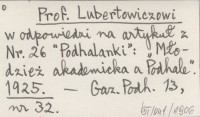 Prof. Lubertowiczowi
w odpowiedzi na artykuł z
Nr. 26 "Podhalanki": "Mło-
dzież akademicka a Podhale".
1925. — Gaz. Podh. 13,
nr 32.